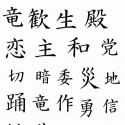 竜歓生殿
恋主和党
切暗委災地
踊竜作勇信